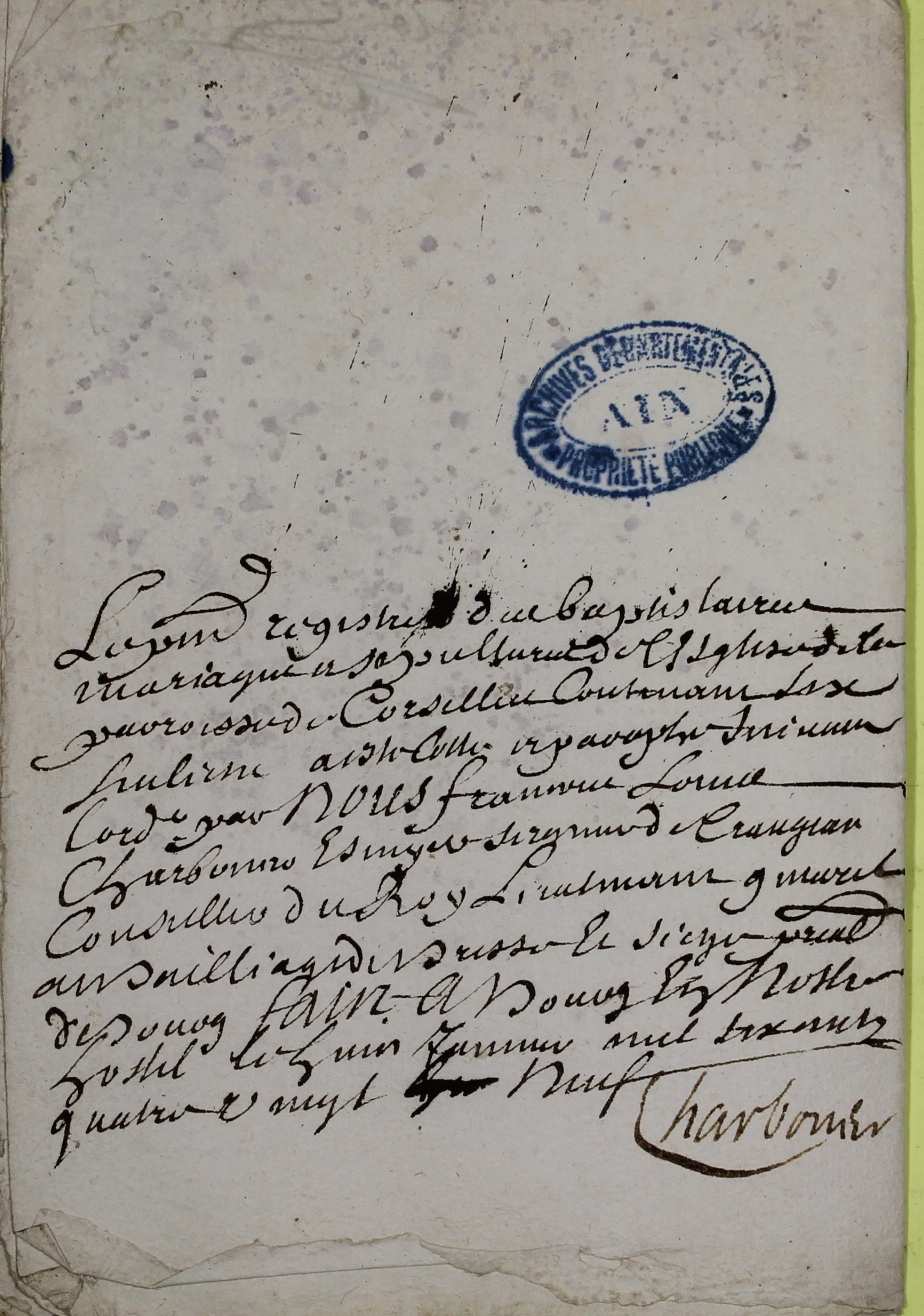 ARCHIVES DÉPARTEMENTALES
AIN
PROPRIÉTÉ PUBLIQUE
Le pnt registre de baptistaire
mariage et sepulture de l'Esglise de la
parroisse de Corselles Contenant six
feuliets a esté Cotté et paraphé
par NOUS francois Louis
Charbonnier Escuyer seigneur de Crangeac
Conseiller du Roy Lieutenant gnaral
au Bailliage de Bresse Et siege preal
de Bourg FAICT A Bourg En Nostre
hostel le huict Janvier mil six cent
quatre vingt Neuf
Charbonier